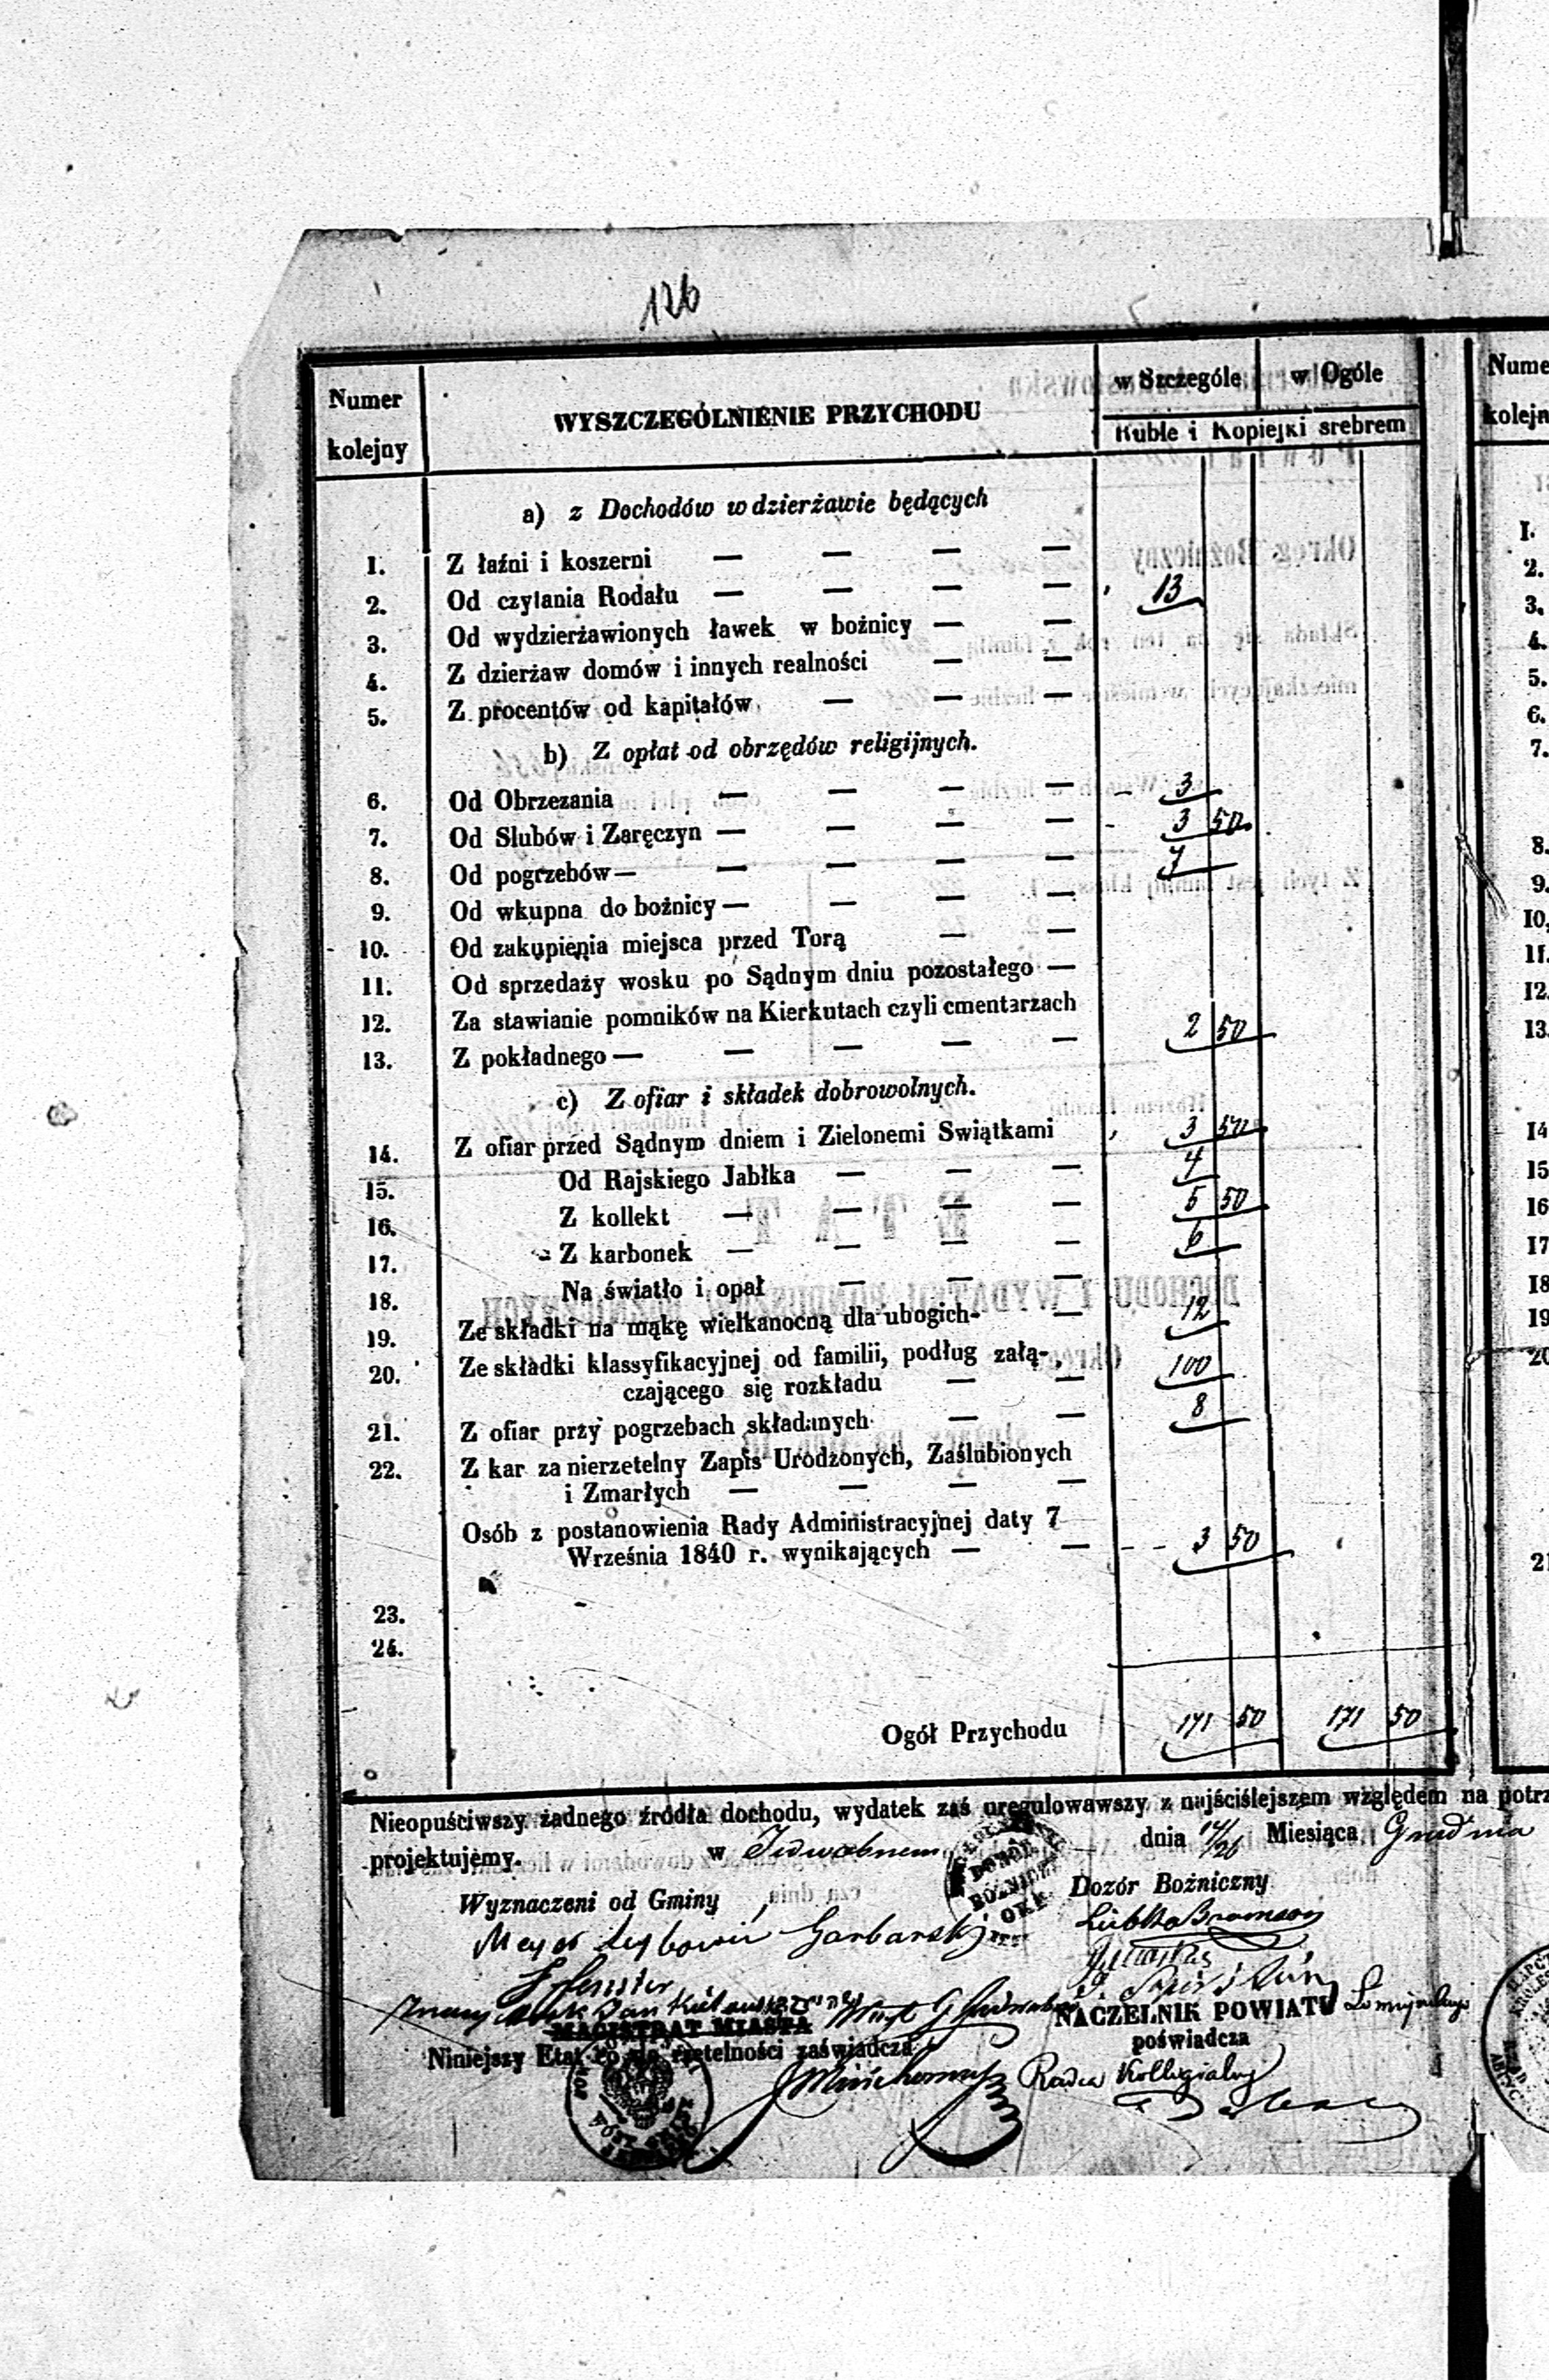 126
Numer kolejny
WYSZCZEGÓLNIENIE PRZYCHODU
w Szczególe
w Ogóle
Ruble i Kopiejki srebrem
a) z Dochodów w dzierżawie będących
1. Z łaźni i koszerni — — — —
2. Od czytania Rodału — — — — 13
3. Od wydzierżawionych ławek w bożnicy — —
4. Z dzierżaw domów i innych realności — —
5. Z procentów od kapitałów — — —
b) Z opłat od obrzędów religijnych.
6. Od Obrzezania — — — — 3
7. Od Slubów i Zaręczyn — — — — 3 50
8. Od pogrzebów — — — — — 7
9. Od wkupna do bożnicy — — — —
10. Od zakupienia miejsca przed Torą — —
11. Od sprzedaży wosku po Sądnym dniu pozostałego —
12. Za stawianie pomników na Kierkutach czyli cmentarzach
13. Z pokładnego — — — — — 2 50
c) Z ofiar i składek dobrowolnych.
14. Z ofiar przed Sądnym dniem i Zielonemi Swiątkami 3 50
15. Od Rajskiego Jabłka — — — 4
16. Z kollekt — — — — 5 50
17. Z karbonek — — — — 6
18. Na światło i opał — — —
19. Ze składki na mąkę wielkanocną dla ubogich — 12
20. Ze składki klassyfikacyjnej od familii, podług załą-
czającego się rozkładu — — 100
21. Z ofiar przy pogrzebach składanych — — 8
22. Z kar za nierzetelny Zapis Urodzonych, Zaślubionych
i Zmarłych — — — —
Osób z postanowienia Rady Administracyjnej daty 7
Września 1840 r. wynikających — — 3 50
23.
24.
Ogół Przychodu 171 50 171 50
Nieopuściwszy żadnego źródła dochodu, wydatek zaś uregulowawszy z najściślejszem względem na potrz
projektujemy. w Jedwabnem dnia 14/26 Miesiąca Grudnia
Wyznaczeni od Gminy
Dozór Bożniczny
DOZÓR
BÓŻNICZY
OKR
Garbarski
MAGISTRAT MIASTA
NACZELNIK POWIATU
Niniejszy Etat co do rzetelności zaświadcza
poświadcza
Radca Kollegialny
Nume
kolejn
1.
2.
3.
4.
5.
6.
7.
8.
9.
10.
11.
12.
13.
14
15
16
17
18
19
20
21